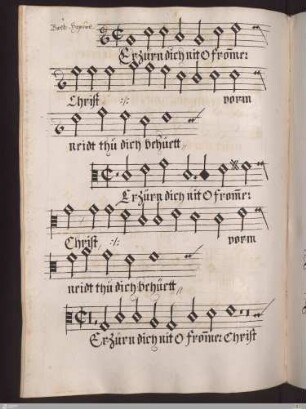 Erzürn dich nit O from̄e:
Christ :/: vorm
neidt thú dich behüett
Erzürn dich nit O from̄e:
Christ :/: vorm
neidt thú dich behüett
Erzürn dich nit O from̄e: Christ